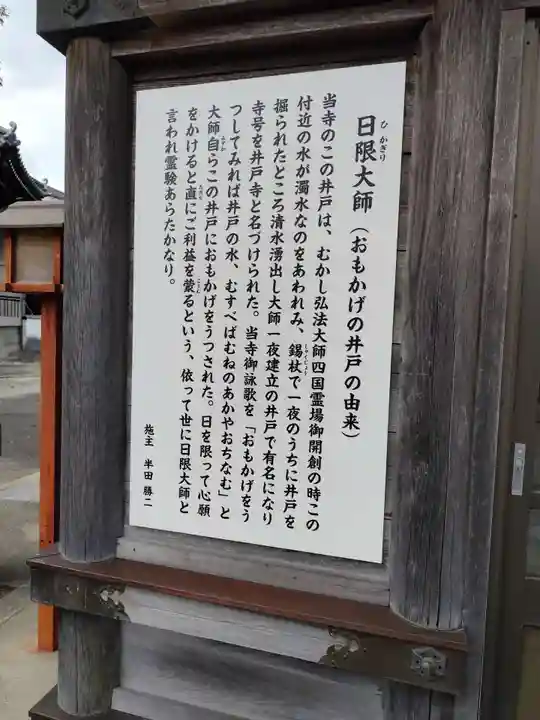 日限大師（おもかげの井戸の由来）
ひかぎり
当寺のこの井戸は、むかし弘法大師四国霊場御開創の時この
付近の水が濁水なのをあわれみ、錫杖で一夜のうちに井戸を
しゃくじょう
掘られたところ清水湧出し大師一夜建立の井戸で有名になり
寺号を井戸寺と名づけられた。当寺御詠歌を「おもかげをう
つしてみれば井戸の水、むすべばむねのあかやおちなむ」と
大師自らこの井戸におもかげをうつされた。日を限って心願
をかけると直にご利益を蒙るという、依って世に日限大師と
言われ霊験あらたかなり。
施主 半田勝二